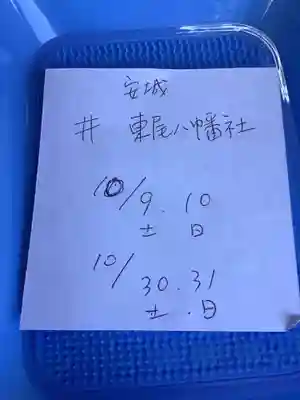 安城
井 東尾八幡社
10/9.10
土 日
10/30.31
土.日